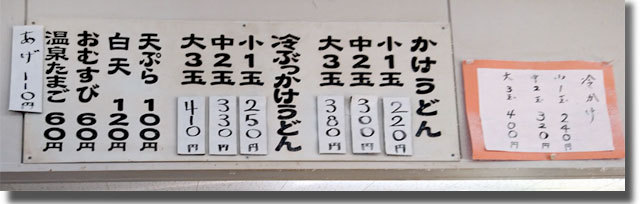 かけうどん
小1玉 220円
中2玉 300円
大3玉 380円
冷ぶっかけうどん
小1玉 250円
中2玉 330円
大3玉 410円
天ぷら 100円
白天 120円
おむすび 60円
温泉たまご 60円
あげ 110円
冷かけ
小1玉 240円
中2玉 320円
大3玉 400円